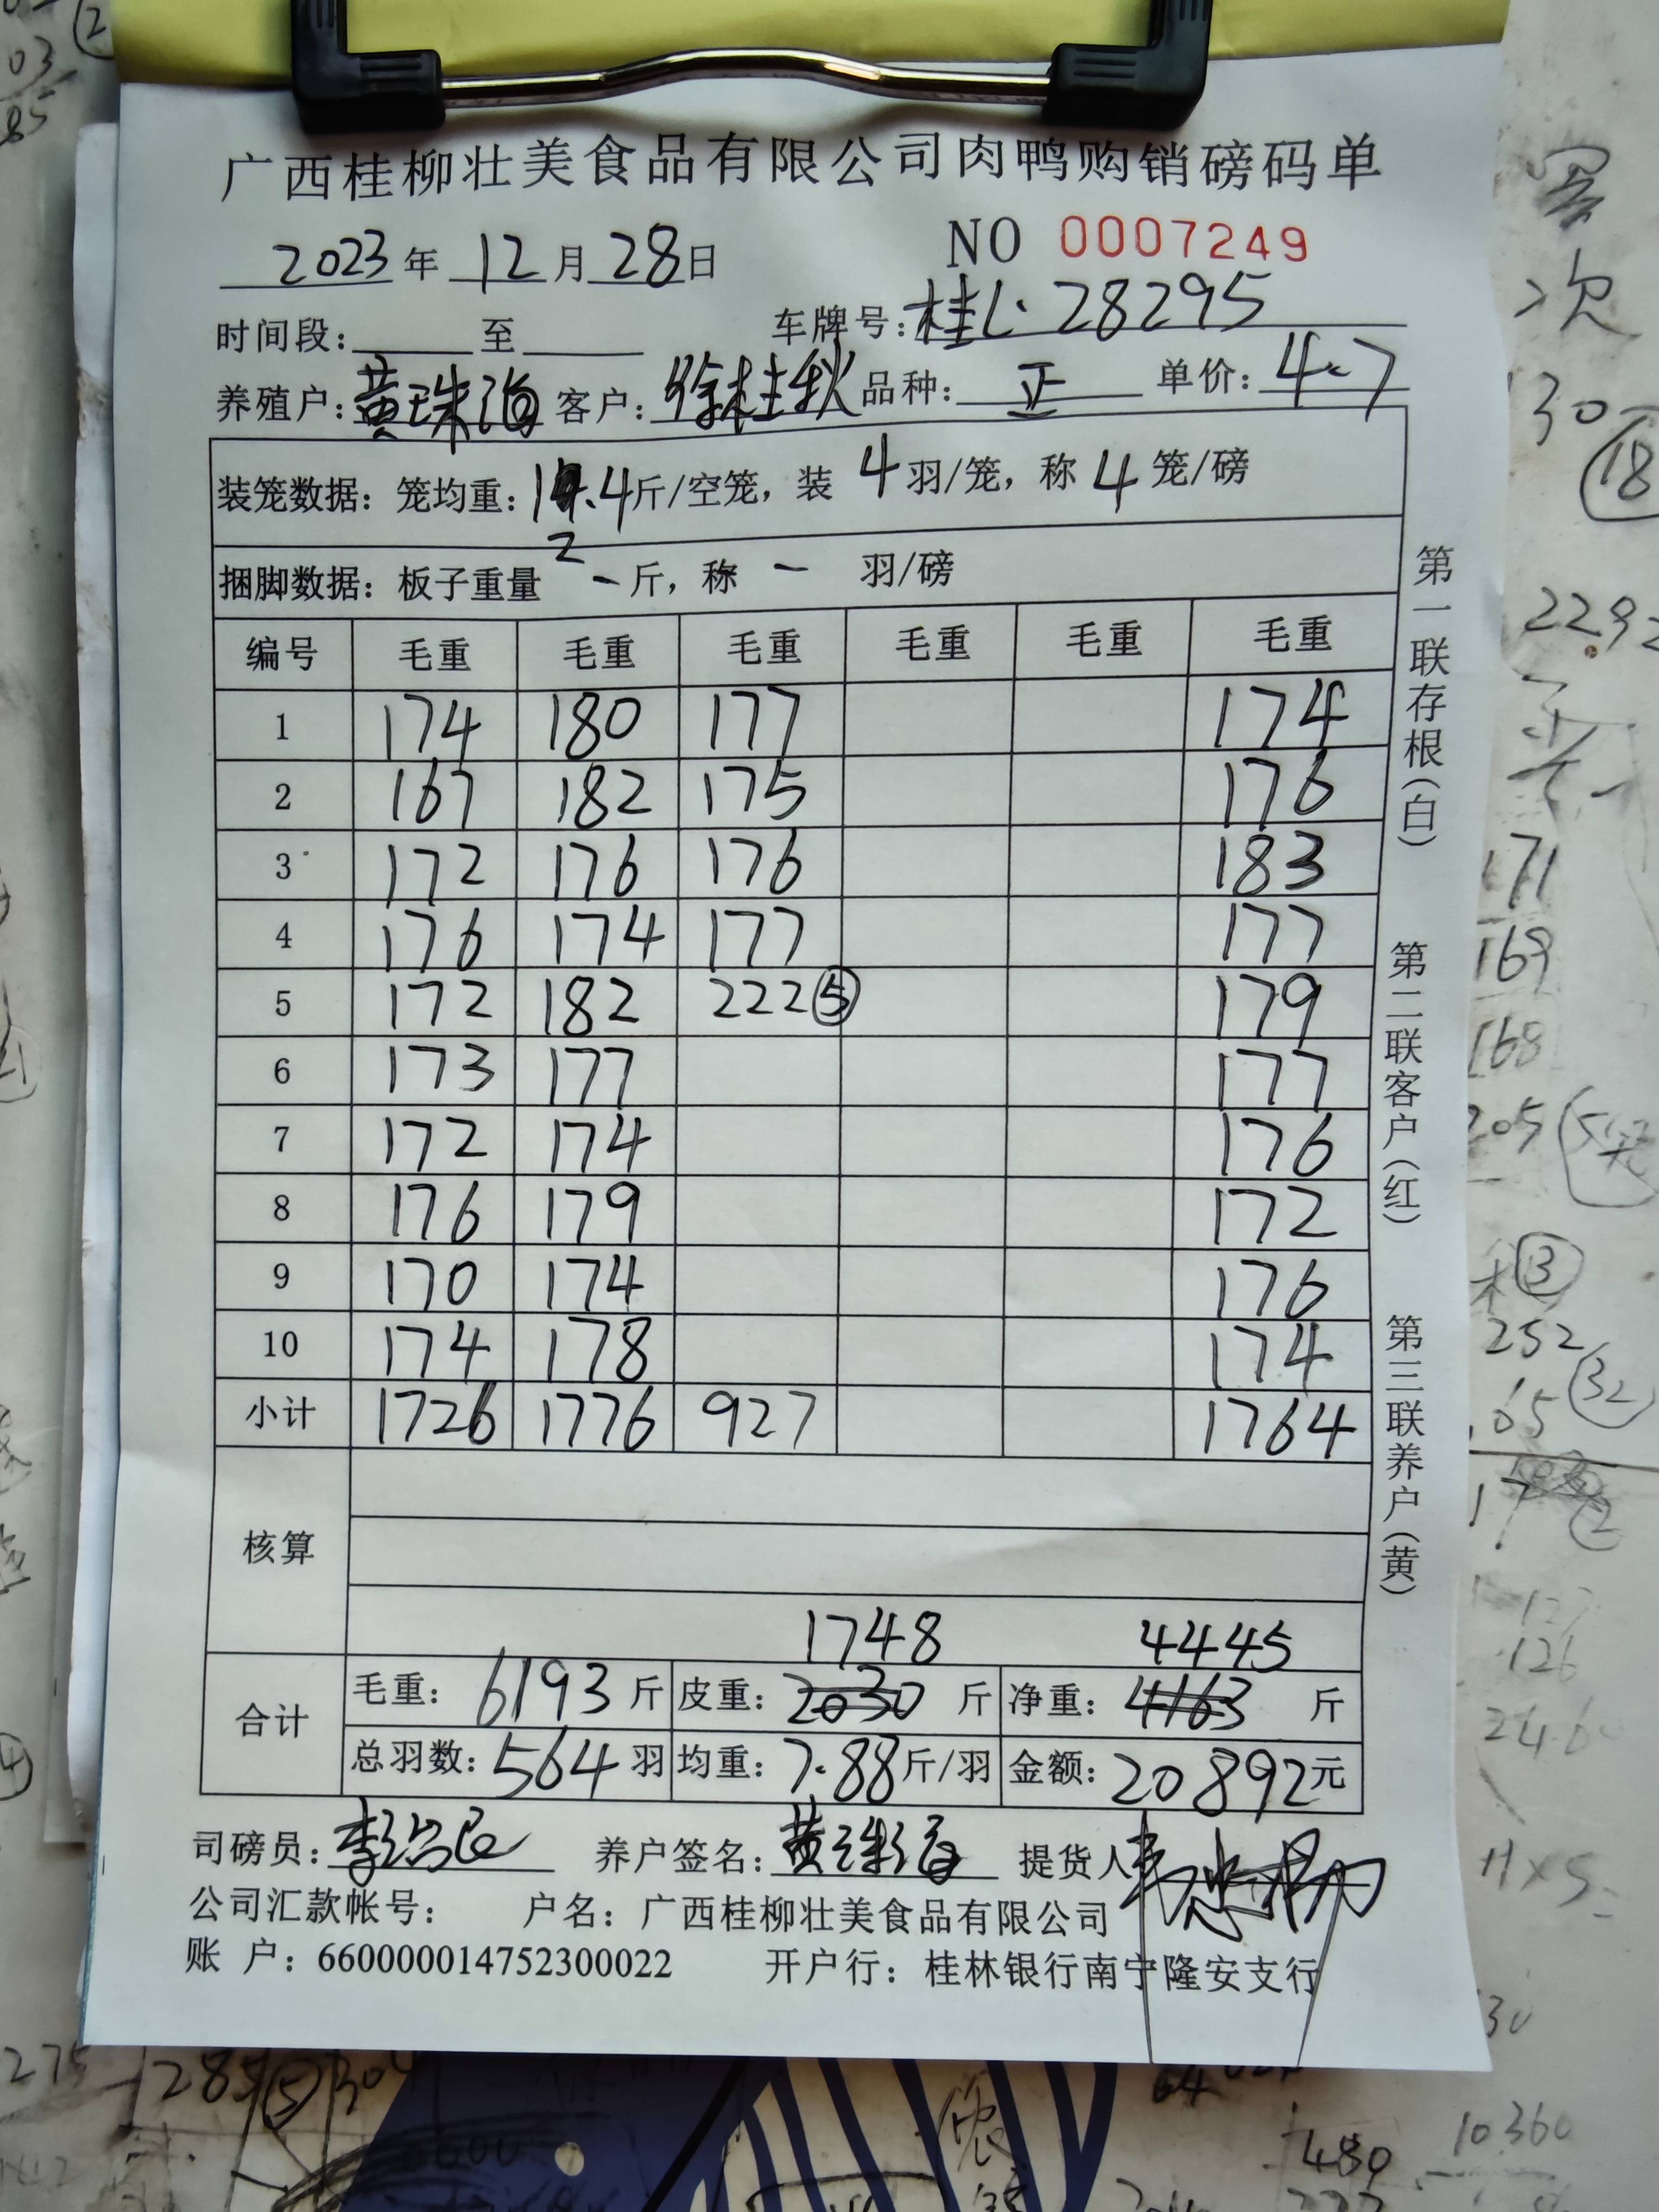 广西桂柳壮美食品有限公司肉鸭购销磅码单
2023年 12月28日 NO 0007249
时间段: 至 车牌号:桂L·28295
养殖户:黄珠海 客户:徐桂秋 品种:正 单价:4.7
装笼数据：笼均重：12.4斤/空笼，装 4 羽/笼，称 4 笼/磅
捆脚数据：板子重量 一 斤，称 一 羽/磅
编号 毛重 毛重 毛重 毛重 毛重 毛重
1 174 180 177 174
2 167 182 175 176
3 172 176 176 183
4 176 174 177 177
5 172 182 222⑤ 179
6 173 177 177
7 172 174 176
8 176 179 172
9 170 174 176
10 174 178 174
小计 1726 1776 927 1764
核算
1748 4445
合计
毛重：6193斤 皮重：2030 斤 净重：4163 斤
总羽数：564羽 均重：7.88斤/羽 金额：20892元
司磅员: 养户签名: 提货人
公司汇款帐号： 户名：广西桂柳壮美食品有限公司
账 户：660000014752300022 开户行：桂林银行南宁隆安支行
第一联存根(白)
第二联客户(红)
第三联养户(黄)
03
85
次
130
18
171
169
168
205
③
252
32
126
275
285⑤
480
10360